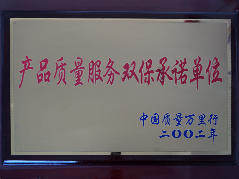 产品质量服务双保承诺单位
中国质量万里行
二〇〇二年